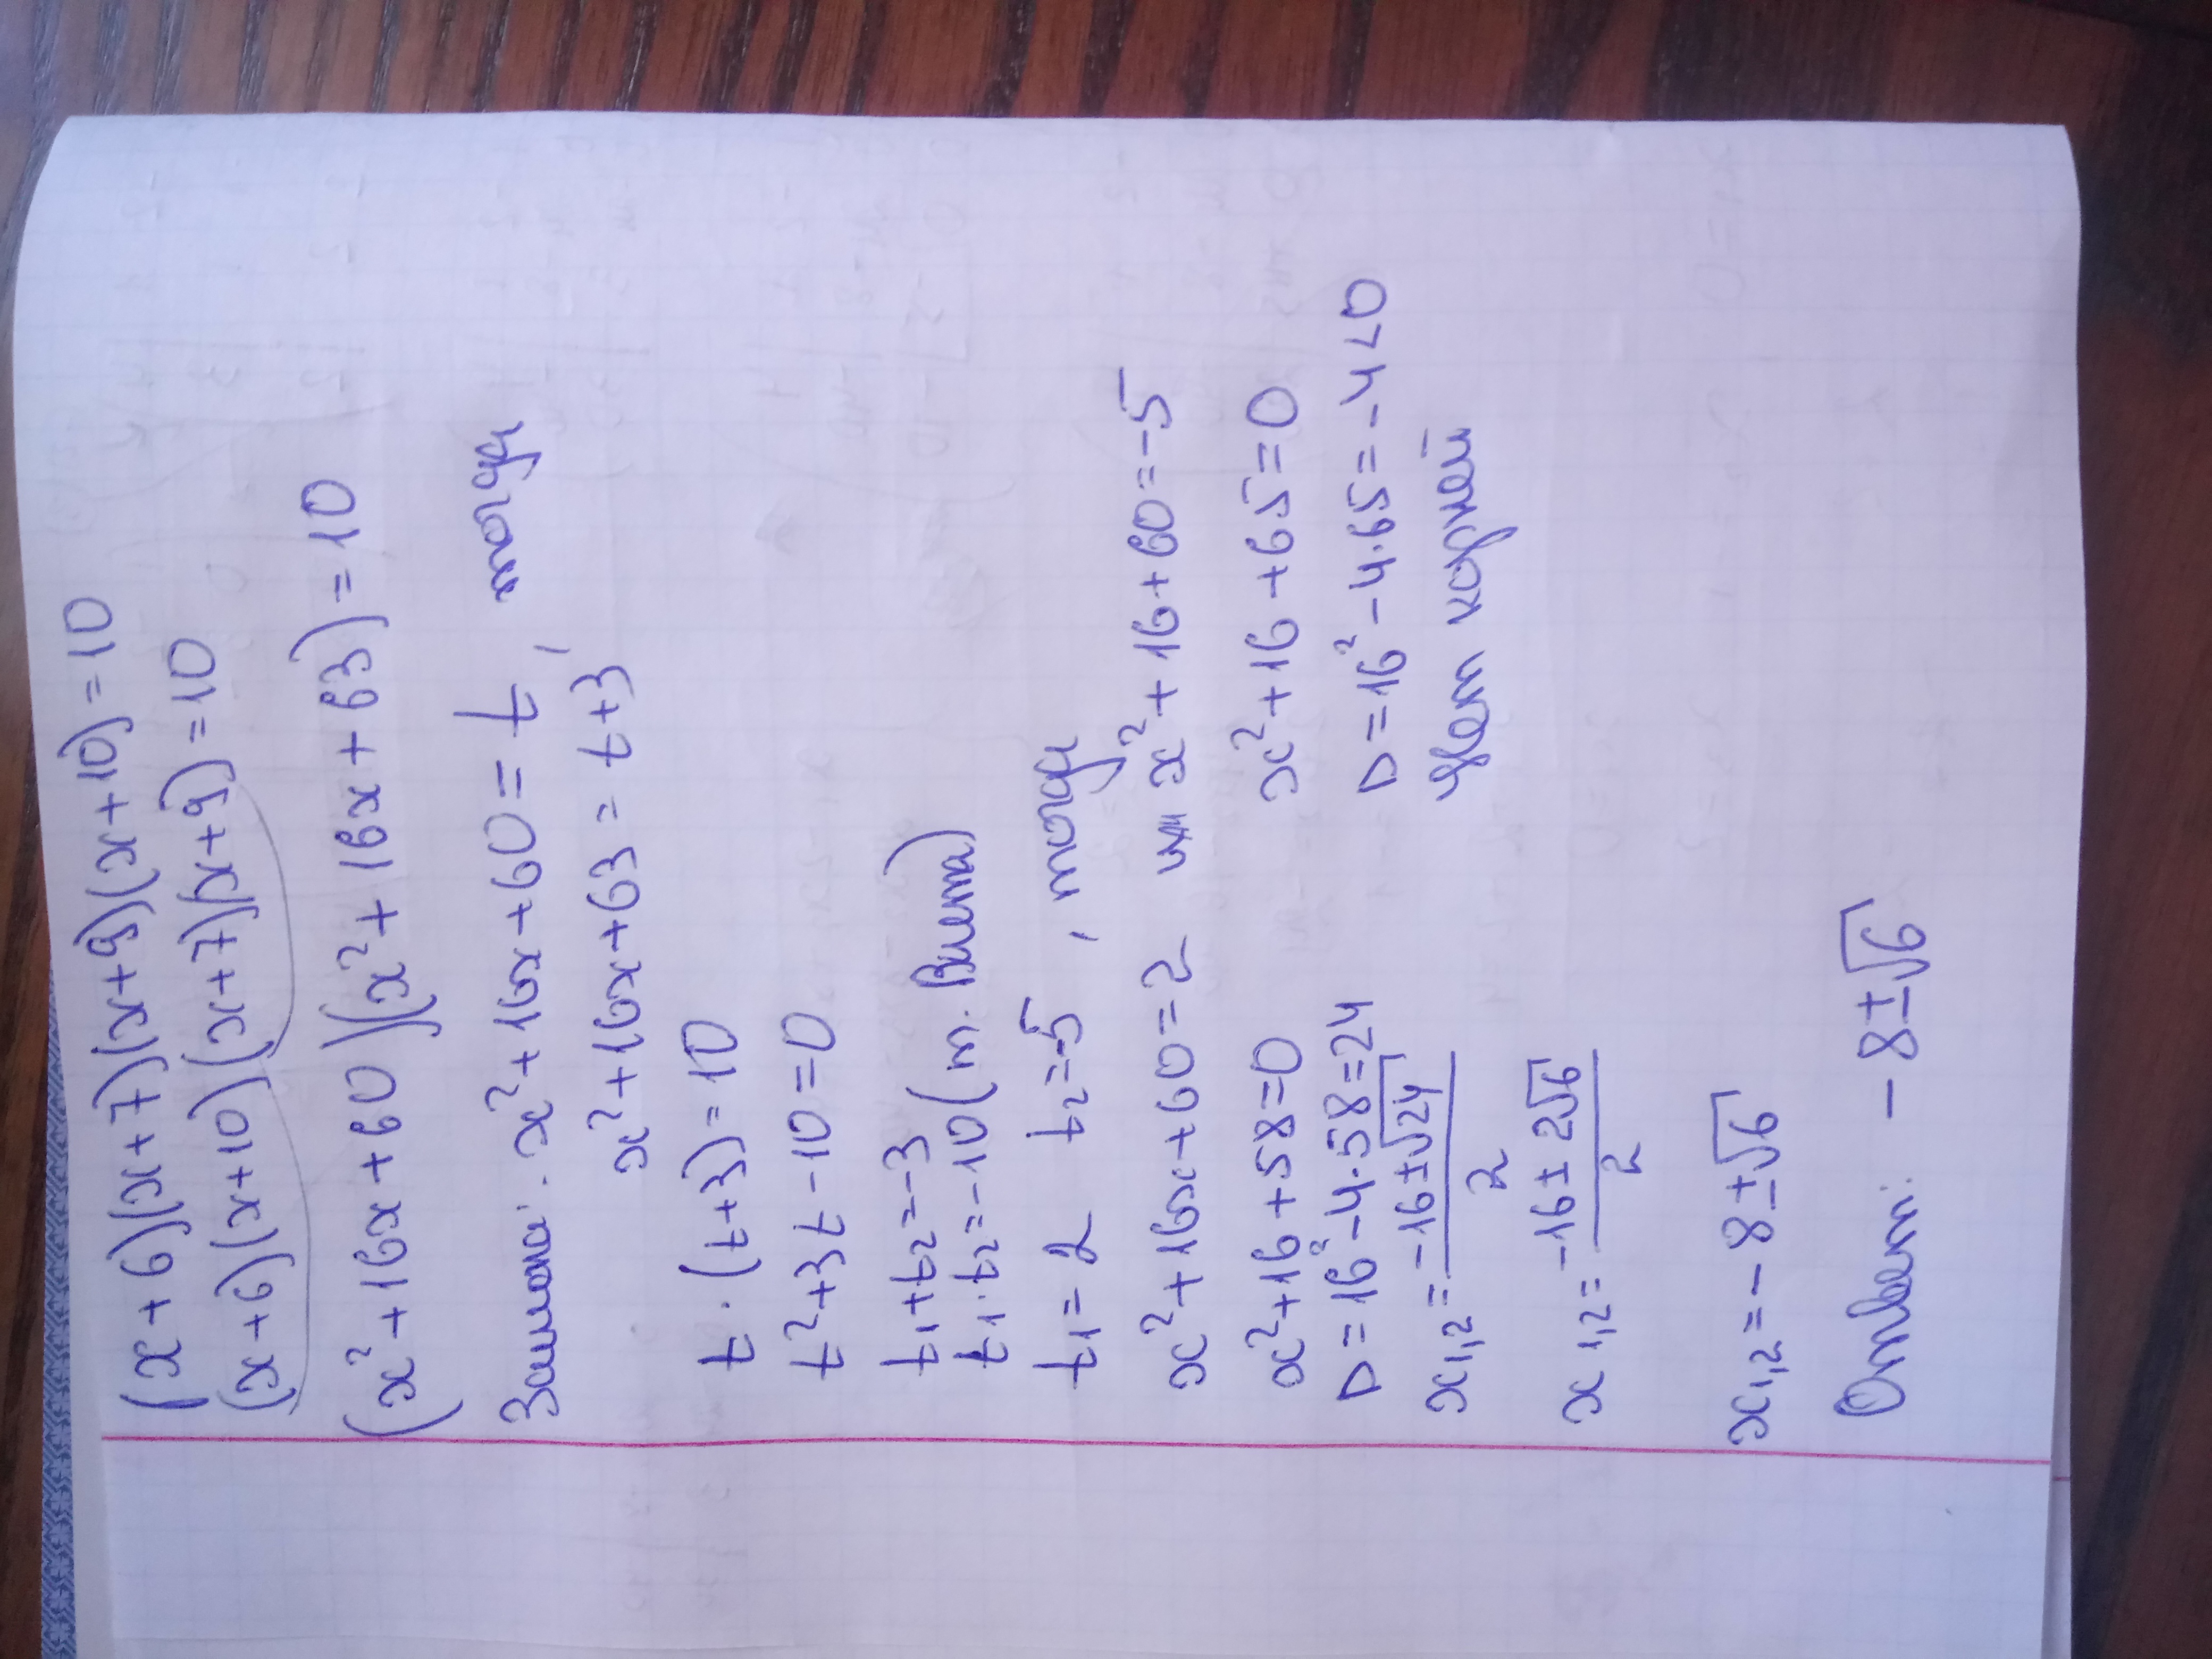 (x+6)(x+7)(x+9)(x+10)=10
(x+6)(x+10)(x+7)(x+9)=10
(x²+16x+60)(x²+16x+63)=10
Замена: x²+16x+60=t, тогда
x²+16x+63=t+3
t·(t+3)=10
t²+3t-10=0
t₁+t₂=-3
t₁·t₂=-10 (т. Виета)
t₁=2 t₂=-5, тогда
x²+16x+60=2 или x²+16+60=-5
x²+16+58=0 x²+16+65=0
D=16²-4·58=24 D=16²-4·65=-4<0
x₁,₂=(-16±√24)/2 Нет корней
x₁,₂=(-16±2√6)/2
x₁,₂=-8±√6
Ответ: -8±√6